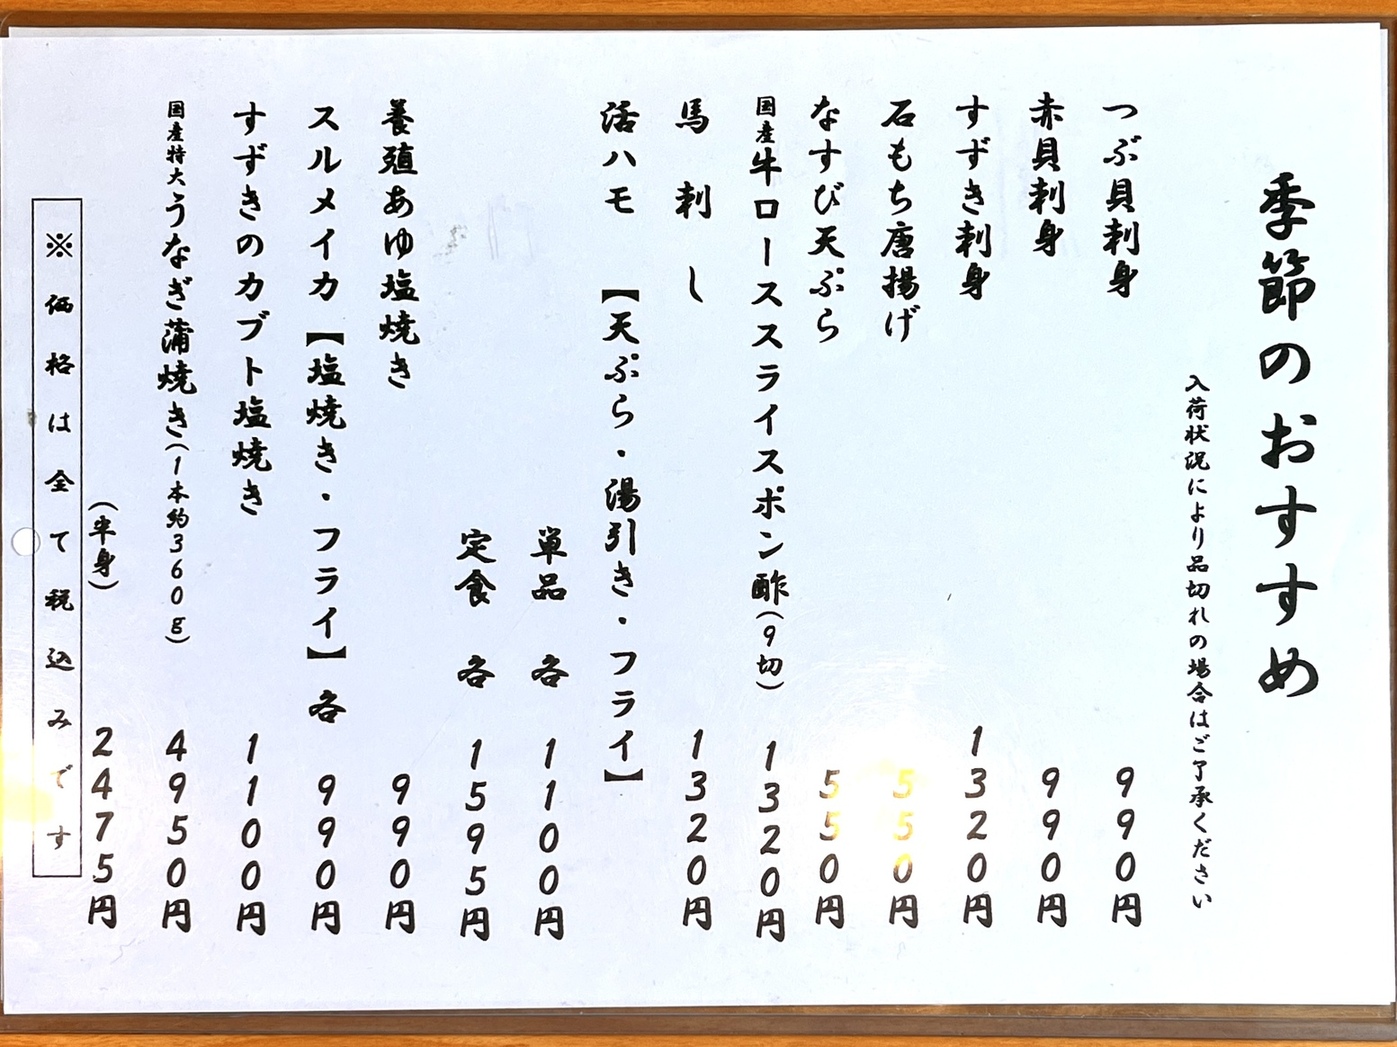 季節のおすすめ
入荷状況により品切れの場合はご了承ください
つぶ貝刺身 990円
赤貝刺身 990円
すずき刺身 1320円
石もち唐揚げ 550円
なすび天ぷら 550円
国産牛ローススライスポン酢(9切) 1320円
馬刺し 1320円
活ハモ【天ぷら・湯引き・フライ】
単品 各 1100円
定食 各 1595円
養殖あゆ塩焼き 990円
スルメイカ【塩焼き・フライ】各 990円
すずきのカブト塩焼き 1100円
国産特大うなぎ蒲焼き(1本約360g) 4950円
(半身) 2475円
※価格は全て税込みです